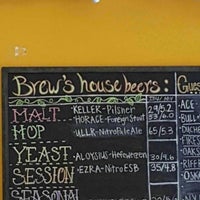 Brew's house beers:
Gues
MALT · KELLER-Pilsner 29/5.2
· HORACE-Foreign Stout 53/6.0
HOP · ULLR-Nitro Pale Ale 65/5.3
YEAST · ALOYSIUS-Hefeweizen 30/4.6
SESSION · EZRA-Nitro ESB 35/4.8
SEASONAL
ACE
BULL
DUCHE
FIRES
OAKS
RIFF
OSKA